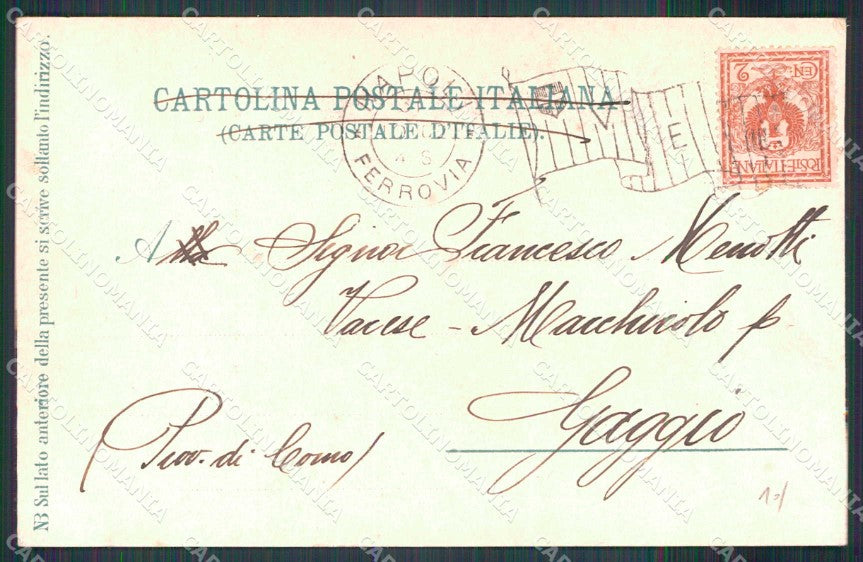 CARTOLINA POSTALE ITALIANA
(CARTE POSTALE D'ITALIE).
NAPOLI
FERROVIA
CEN. 2
POSTE ITALIANE
A Signor Francesco Menotti
Varese - Macchirolo p
Gaggio
(Prov. di Como)
NB Sul lato anteriore della presente si scrive soltanto l'indirizzo.
CARTOLINOMANIA